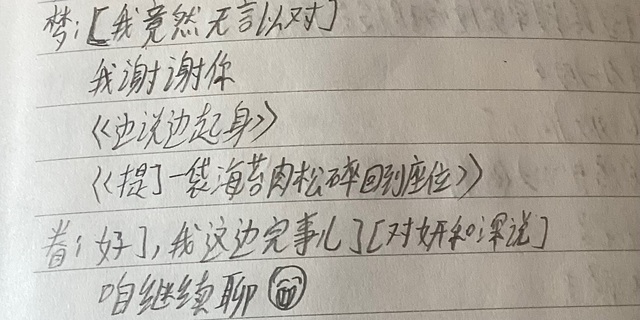 梦:[我竟然无言以对]
我谢谢你
《边说边起身》
《提了一袋海苔肉松碎回到座位》
眷:好了,我这边完事儿了[对妍和深说]
咱继续聊